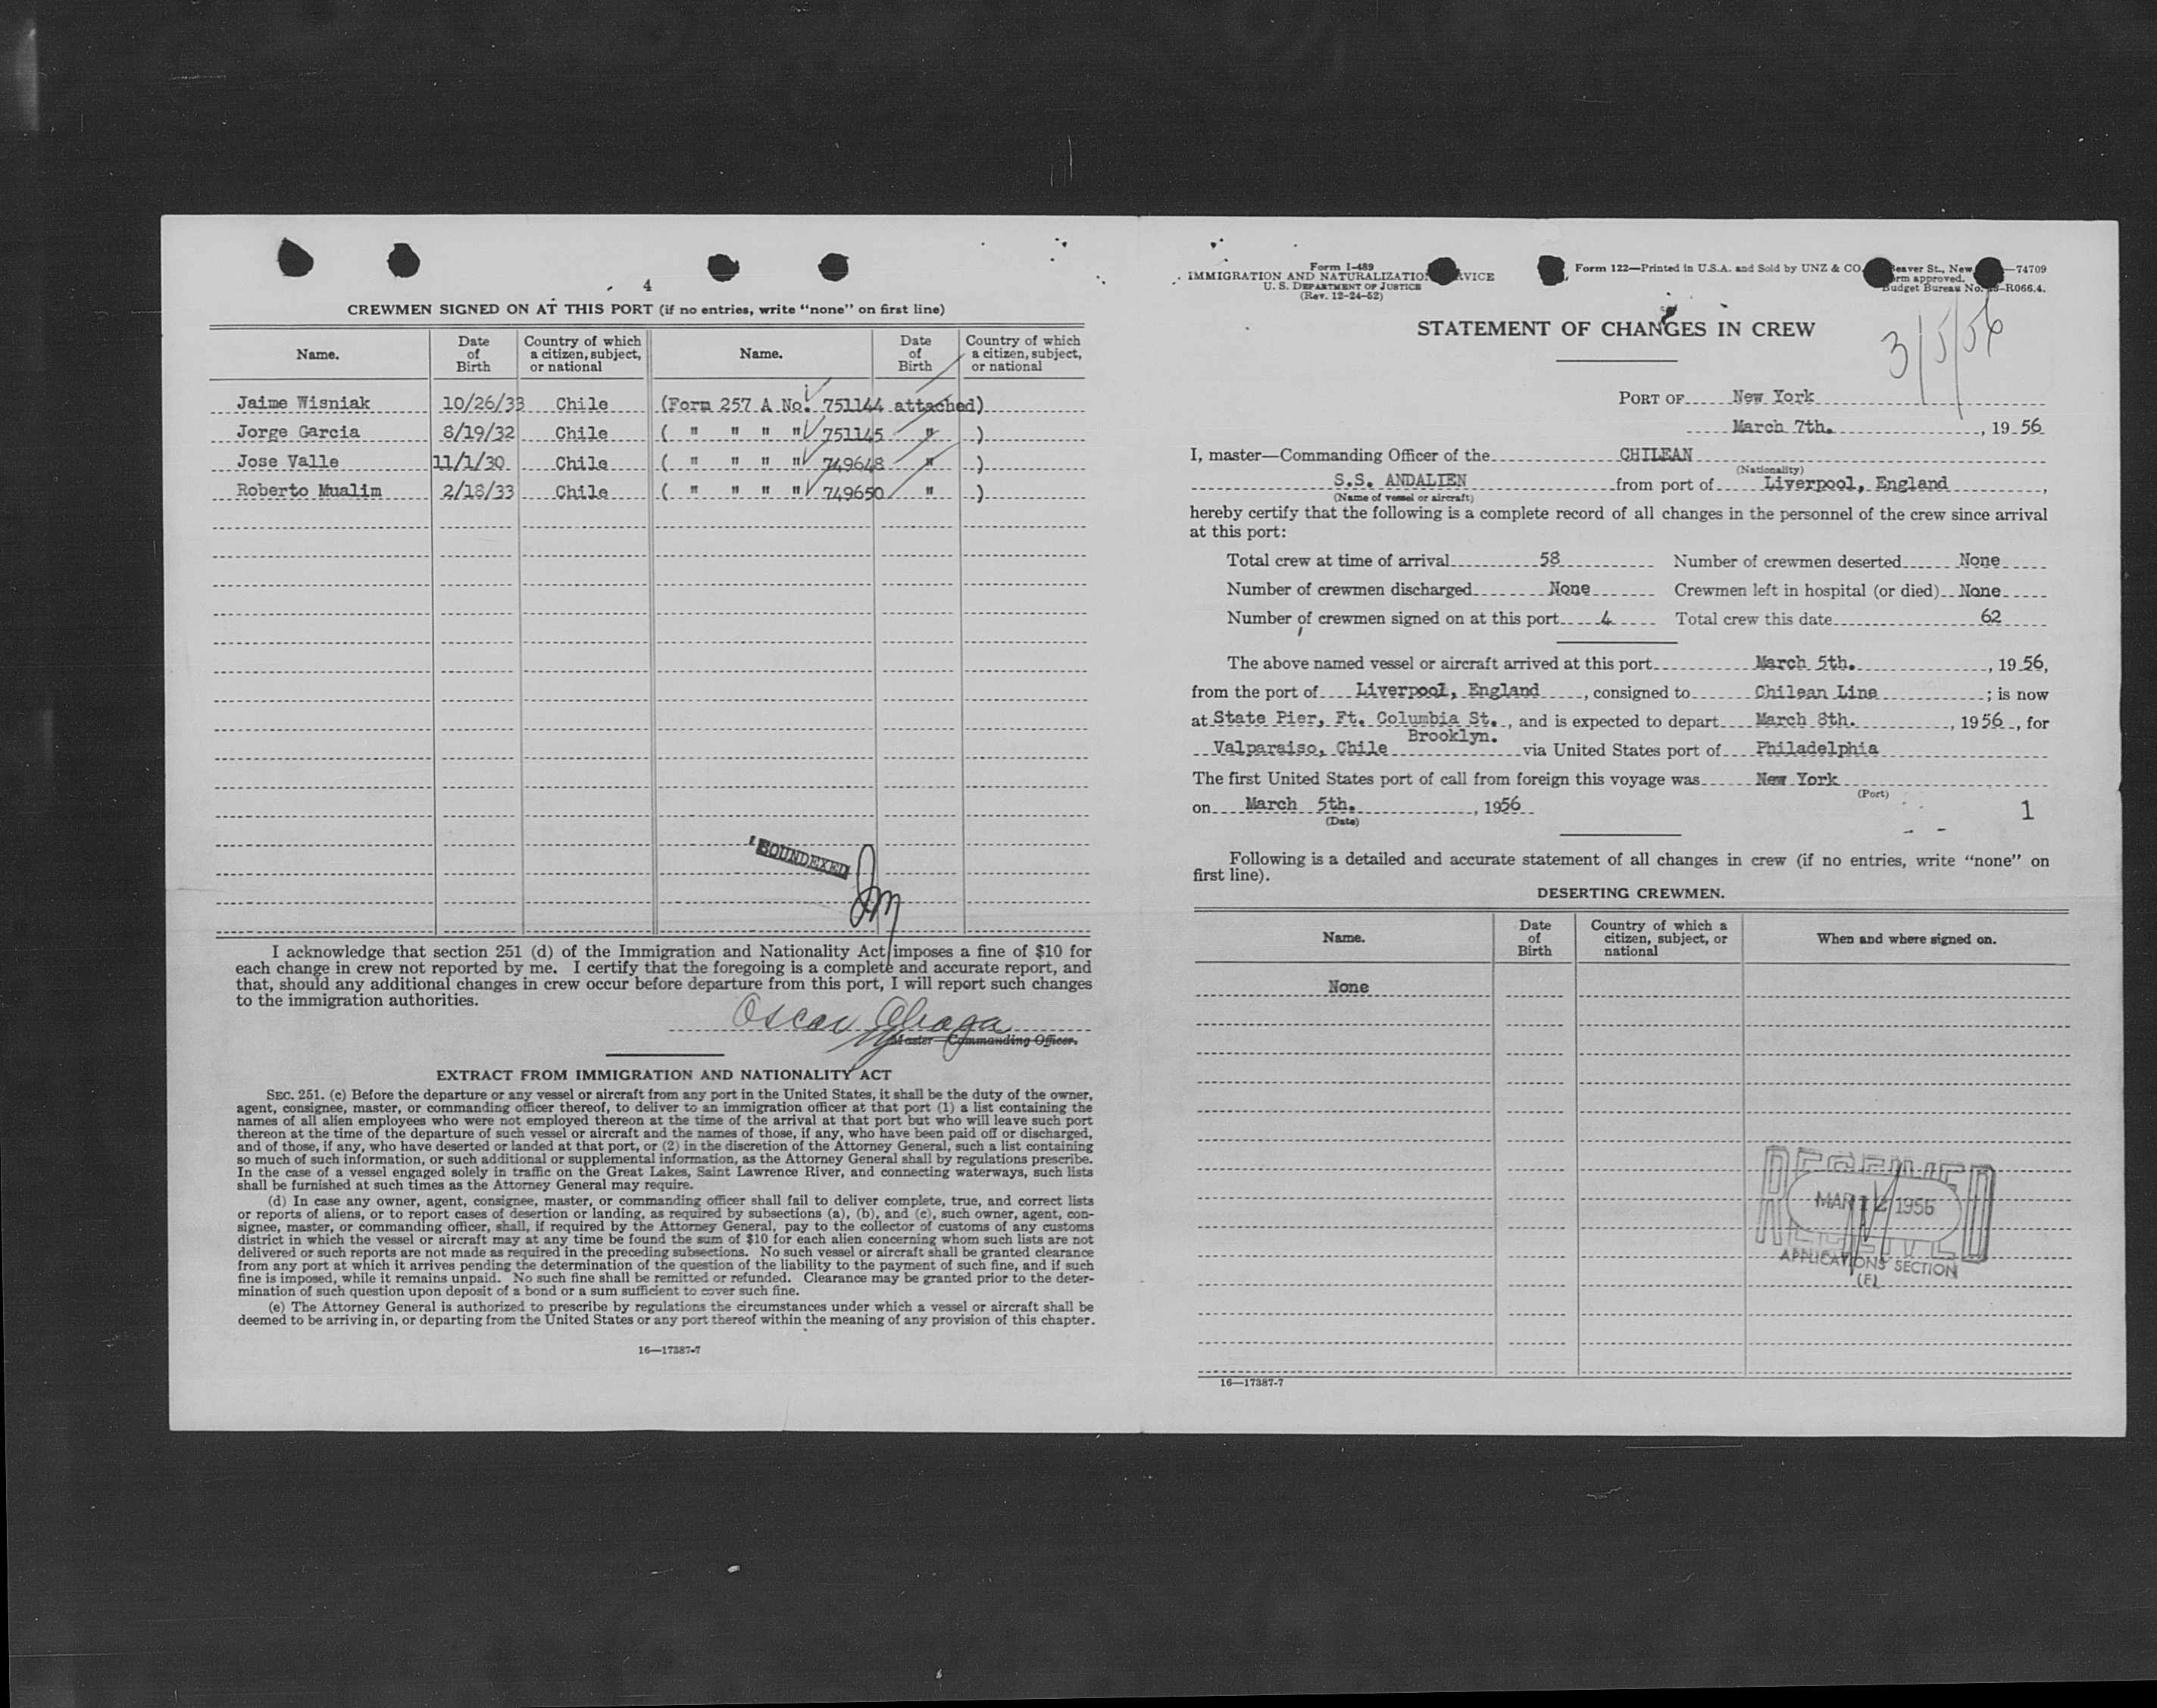 4
CREWMEN SIGNED ON AT THIS PORT (if no entries, write “none” on first line)
Name. Date of Birth Country of which a citizen, subject, or national Name. Date of Birth Country of which a citizen, subject, or national
Jaime Wisniak 10/26/33 Chile (Form 257 A No. 751144 attached)
Jorge Garcia 8/19/32 Chile ( " " " " 751145 " )
Jose Valle 11/1/30 Chile ( " " " " 749648 " )
Roberto Mualim 2/18/33 Chile ( " " " " 749650 " )
SOUNDEXED
I acknowledge that section 251 (d) of the Immigration and Nationality Act imposes a fine of $10 for
each change in crew not reported by me. I certify that the foregoing is a complete and accurate report, and
that, should any additional changes in crew occur before departure from this port, I will report such changes
to the immigration authorities.
Oscar
Master—Commanding Officer.
EXTRACT FROM IMMIGRATION AND NATIONALITY ACT
SEC. 251. (c) Before the departure or any vessel or aircraft from any port in the United States, it shall be the duty of the owner,
agent, consignee, master, or commanding officer thereof, to deliver to an immigration officer at that port (1) a list containing the
names of all alien employees who were not employed thereon at the time of the arrival at that port but who will leave such port
thereon at the time of the departure of such vessel or aircraft and the names of those, if any, who have been paid off or discharged,
and of those, if any, who have deserted or landed at that port, or (2) in the discretion of the Attorney General, such a list containing
so much of such information, or such additional or supplemental information, as the Attorney General shall by regulations prescribe.
In the case of a vessel engaged solely in traffic on the Great Lakes, Saint Lawrence River, and connecting waterways, such lists
shall be furnished at such times as the Attorney General may require.
(d) In case any owner, agent, consignee, master, or commanding officer shall fail to deliver complete, true, and correct lists
or reports of aliens, or to report cases of desertion or landing, as required by subsections (a), (b), and (c), such owner, agent, con-
signee, master, or commanding officer, shall, if required by the Attorney General, pay to the collector of customs of any customs
district in which the vessel or aircraft may at any time be found the sum of $10 for each alien concerning whom such lists are not
delivered or such reports are not made as required in the preceding subsections. No such vessel or aircraft shall be granted clearance
from any port at which it arrives pending the determination of the question of the liability to the payment of such fine, and if such
fine is imposed, while it remains unpaid. No such fine shall be remitted or refunded. Clearance may be granted prior to the deter-
mination of such question upon deposit of a bond or a sum sufficient to cover such fine.
(e) The Attorney General is authorized to prescribe by regulations the circumstances under which a vessel or aircraft shall be
deemed to be arriving in, or departing from the United States or any port thereof within the meaning of any provision of this chapter.
16—17387-7
Form I-489
IMMIGRATION AND NATURALIZATIO VICE
U. S. DEPARTMENT OF JUSTICE
(Rev. 12-24-52)
Form 122—Printed in U.S.A. and Sold by UNZ & CO. eaver St., New —74709
rm approved.
Budget Bureau No. -R066.4.
STATEMENT OF CHANGES IN CREW
3/5/56
PORT OF New York
March 7th. , 19 56
I, master—Commanding Officer of the CHILEAN
(Nationality)
S.S. ANDALIEN from port of Liverpool, England ,
(Name of vessel or aircraft)
hereby certify that the following is a complete record of all changes in the personnel of the crew since arrival
at this port:
Total crew at time of arrival 58 Number of crewmen deserted None
Number of crewmen discharged None Crewmen left in hospital (or died) None
Number of crewmen signed on at this port 4 Total crew this date 62
The above named vessel or aircraft arrived at this port March 5th. , 19 56,
from the port of Liverpool, England , consigned to Chilean Line ; is now
at State Pier, Ft. Columbia St. , and is expected to depart March 8th. , 1956 , for
Brooklyn.
Valparaiso, Chile via United States port of Philadelphia
The first United States port of call from foreign this voyage was New York
(Port)
on March 5th. , 1956
(Date)
1
Following is a detailed and accurate statement of all changes in crew (if no entries, write “none” on
first line).
DESERTING CREWMEN.
Name. Date of Birth Country of which a citizen, subject, or national When and where signed on.
None
RECEIVED
MAR 12 1956
RECEIVED
APPLICATIONS SECTION
(E)
16—17387-7